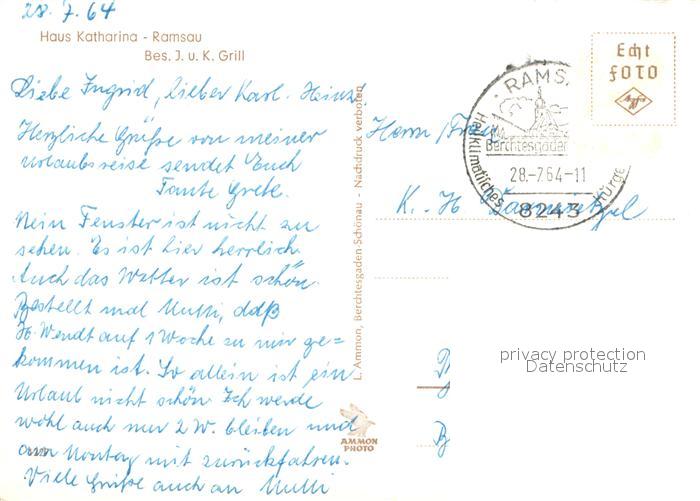 28.7.64
Haus Katharina - Ramsau
Bes. J. u. K. Grill
Liebe Ingrid, lieber Karl-Heinz.
Herzliche Grüße von meiner
Urlaubsreise sendet Euch
Tante Grete.
Mein Fenster ist nicht zu
sehen. Es ist hier herrlich.
Auch das Wetter ist schön.
Bestellt mal Mutti, daß
H. Wendt auf 1 Woche zu mir ge=
kommen ist. So allein ist ein
Urlaub nicht schön. Ich werde
wohl auch nur 2 W. bleiben und
am Montag mit zurückfahren.
Viele Grüße auch an Mutti
L. Ammon, Berchtesgaden-Schönau - Nachdruck verboten
AMMON
PHOTO
Echt
FOTO
Agfa
RAMS
Berchtesgaden
28.-7.64-11
Heilklimatisches
8243
Herrn / Frau
K.-H.
privacy protection
Datenschutz